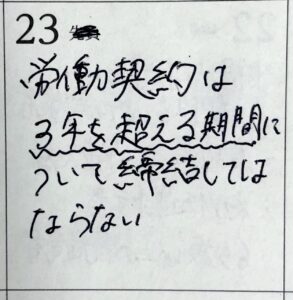 23
労働契約は
3年を超える期間に
ついて締結しては
ならない